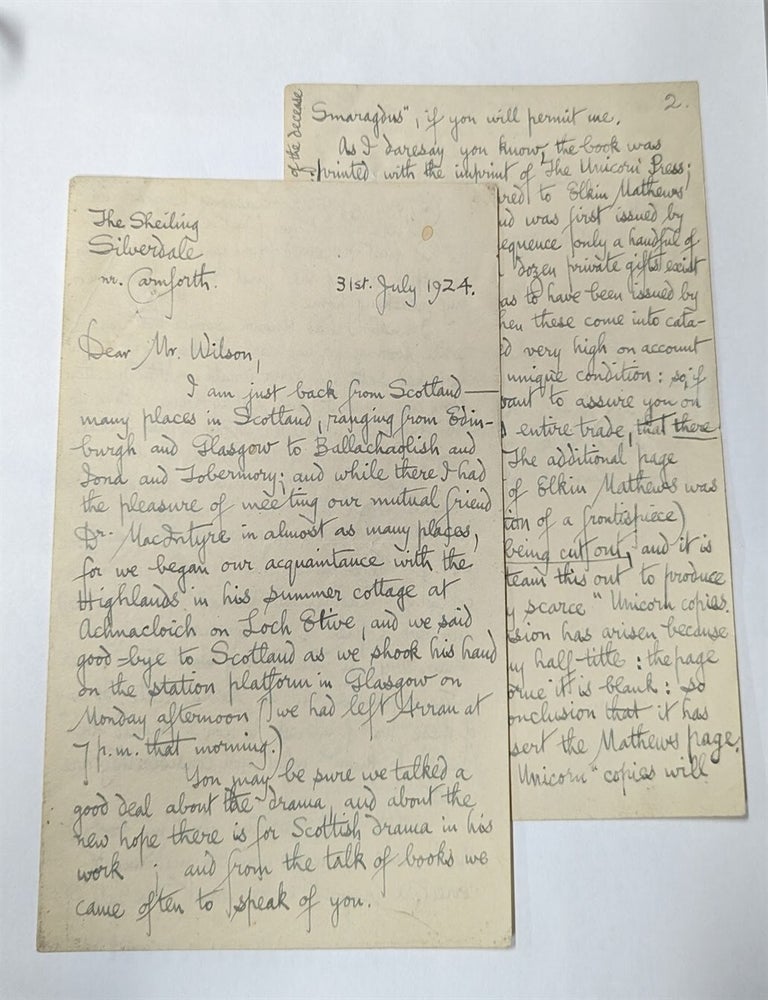 The Sheiling
Silverdale
nr. Carnforth.
31st. July 1924.
Dear Mr. Wilson,
I am just back from Scotland—
many places in Scotland, ranging from Edin-
burgh and Glasgow to Ballachaolish and
Iona and Tobermory; and while there I had
the pleasure of meeting our mutual friend
Dr. MacIntyre in almost as many places,
for we began our acquaintance with the
Highlands in his summer cottage at
Achnacloich on Loch Etive, and we said
good-bye to Scotland as we shook his hand
on the station platform in Glasgow on
Monday afternoon (we had left Arran at
7 p.m. that morning.)
You may be sure we talked a
good deal about the drama, and about the
new hope there is for Scottish drama in his
work ; and from the talk of books we
came often to speak of you.
2.
of the decease
Smaragdus", if you will permit me.
As I daresay you know, the book was
printed with the imprint of The Unicorn Press;
red to Elkin Mathews
was first issued by
equence only a handful of
dozen private gifts exist
as to have been issued by
hen these come into cata-
very high on account
unique condition: so, if
want to assure you on
entire trade, that there
The additional page
of Elkin Mathews was
tion of a frontispiece)
being cut out, and it is
team this out to produce
scarce "Unicorn copies.
sion has arisen because
half-title: the page
it is blank: so
onclusion that it has
sert the Mathews page.
Unicorn" copies will